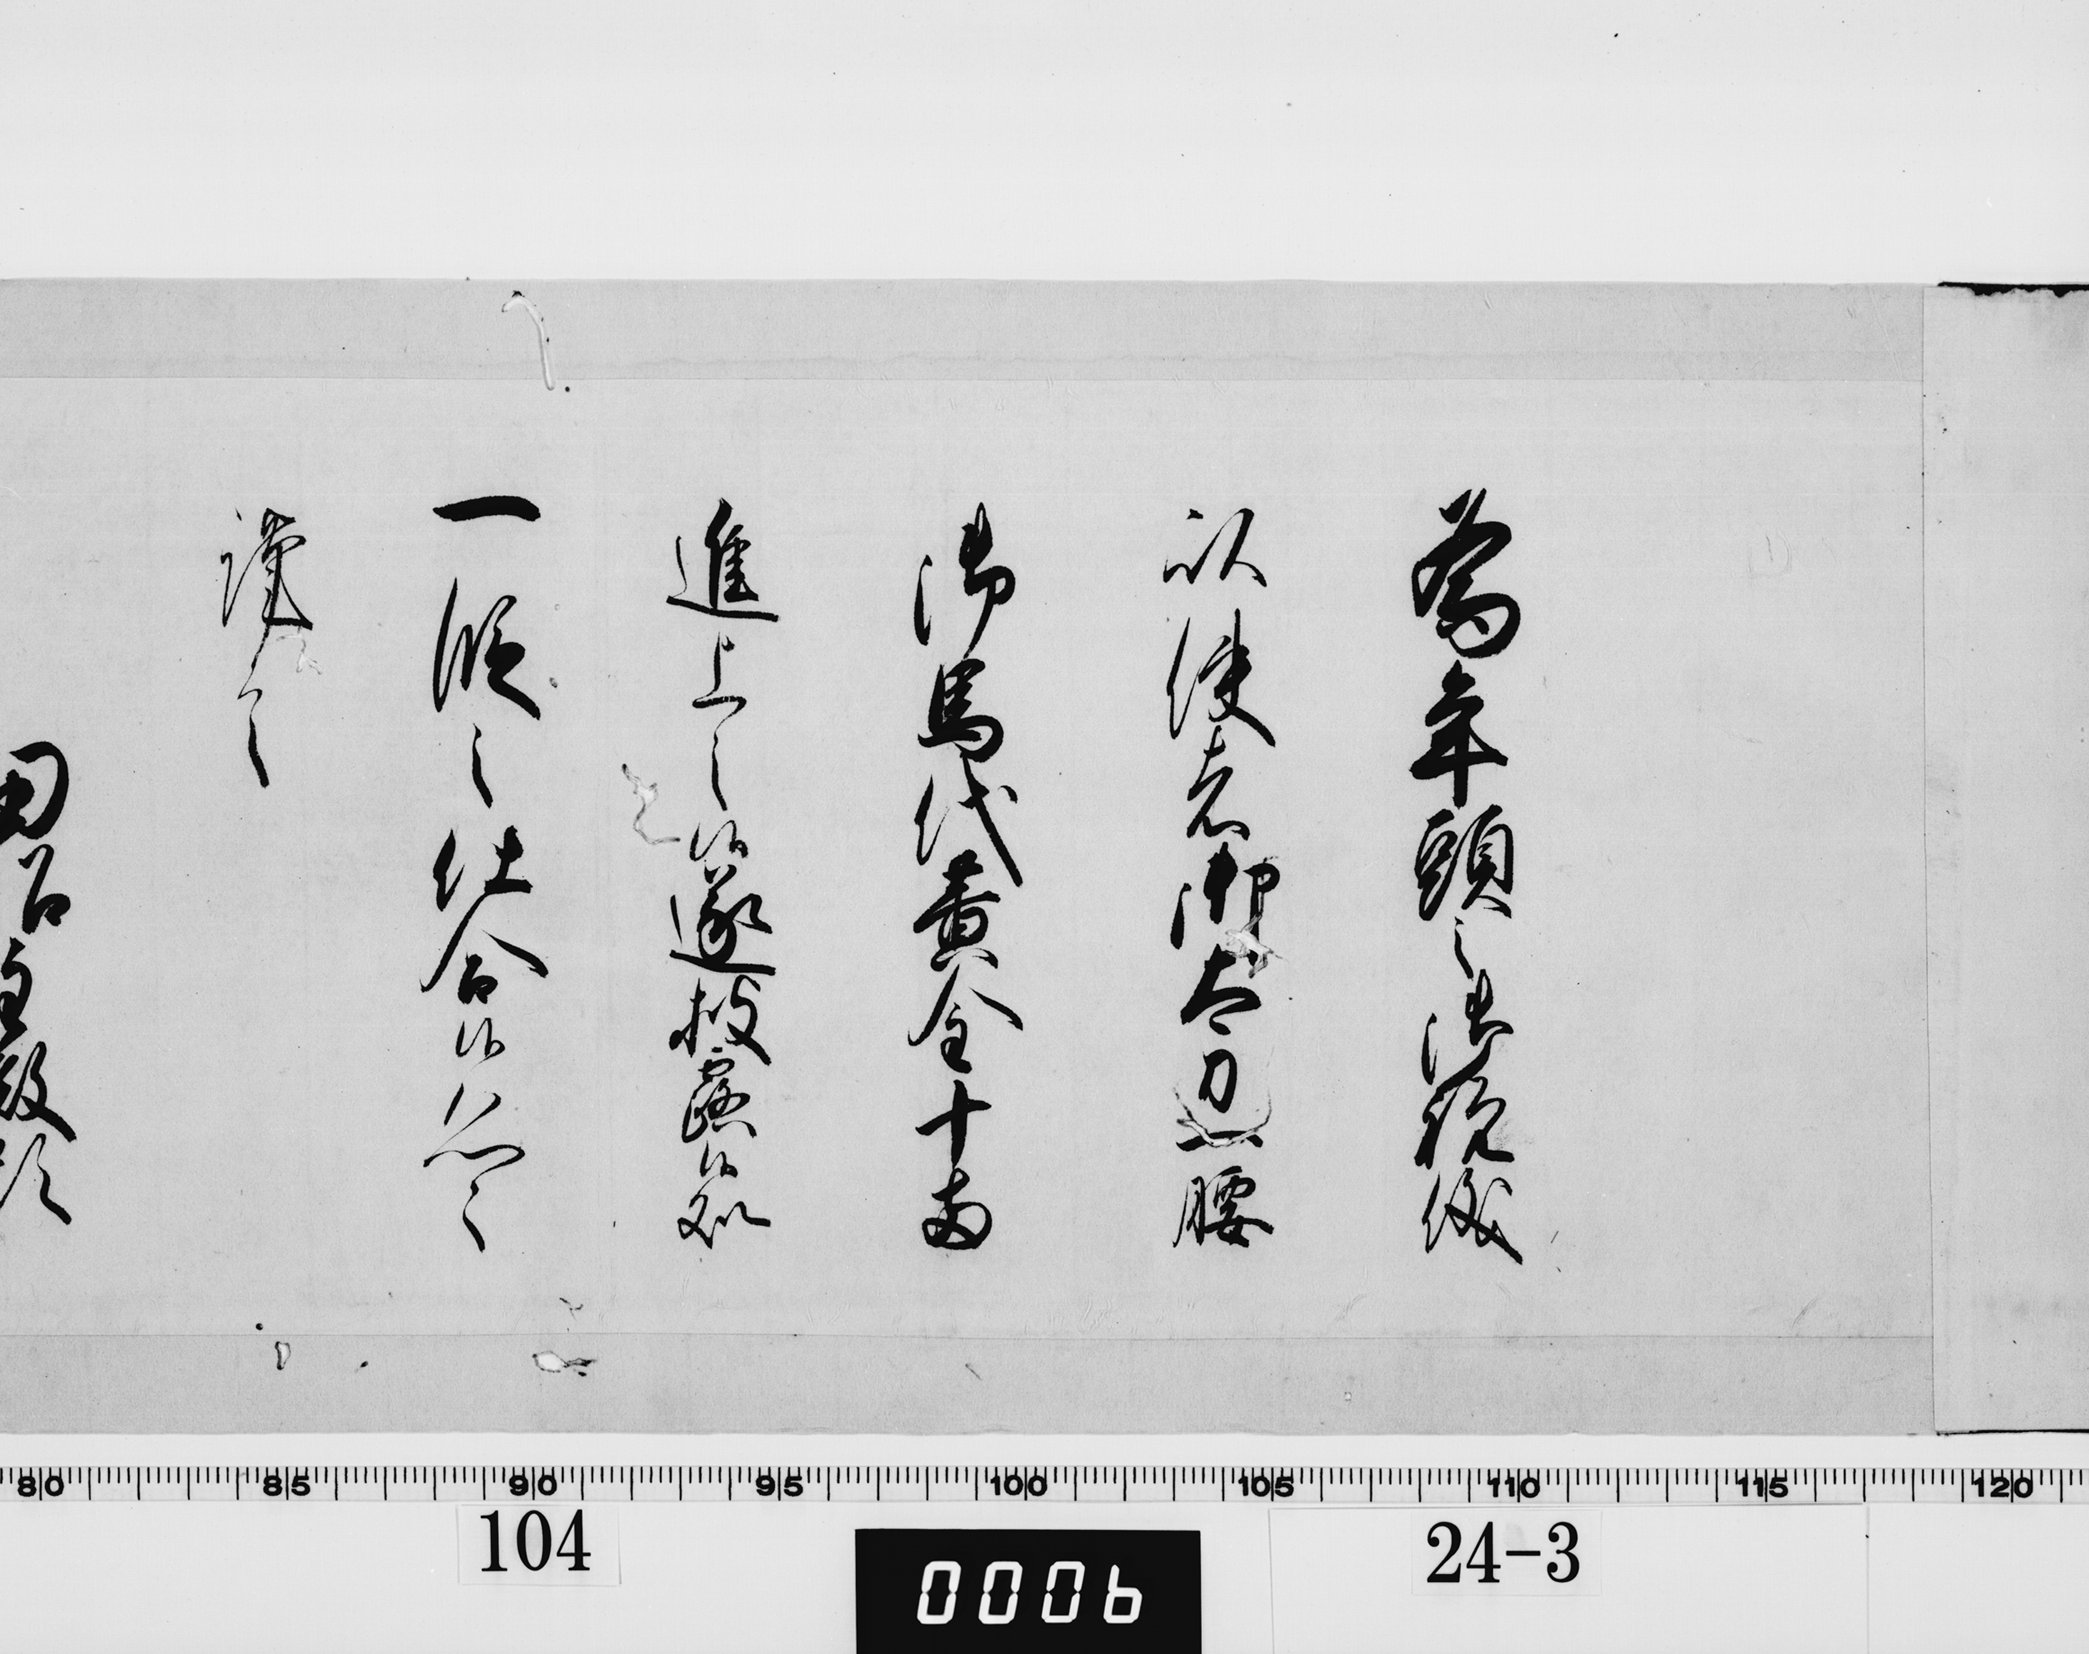 為年頭之御祝儀
以使者御太刀一腰
御馬代黄金十両
進上之候遂披露候処
一段之仕合候恐々
謹言
田沼主殿頭
80 85 90 95 100 105 110 115 120
104
0006
24-3